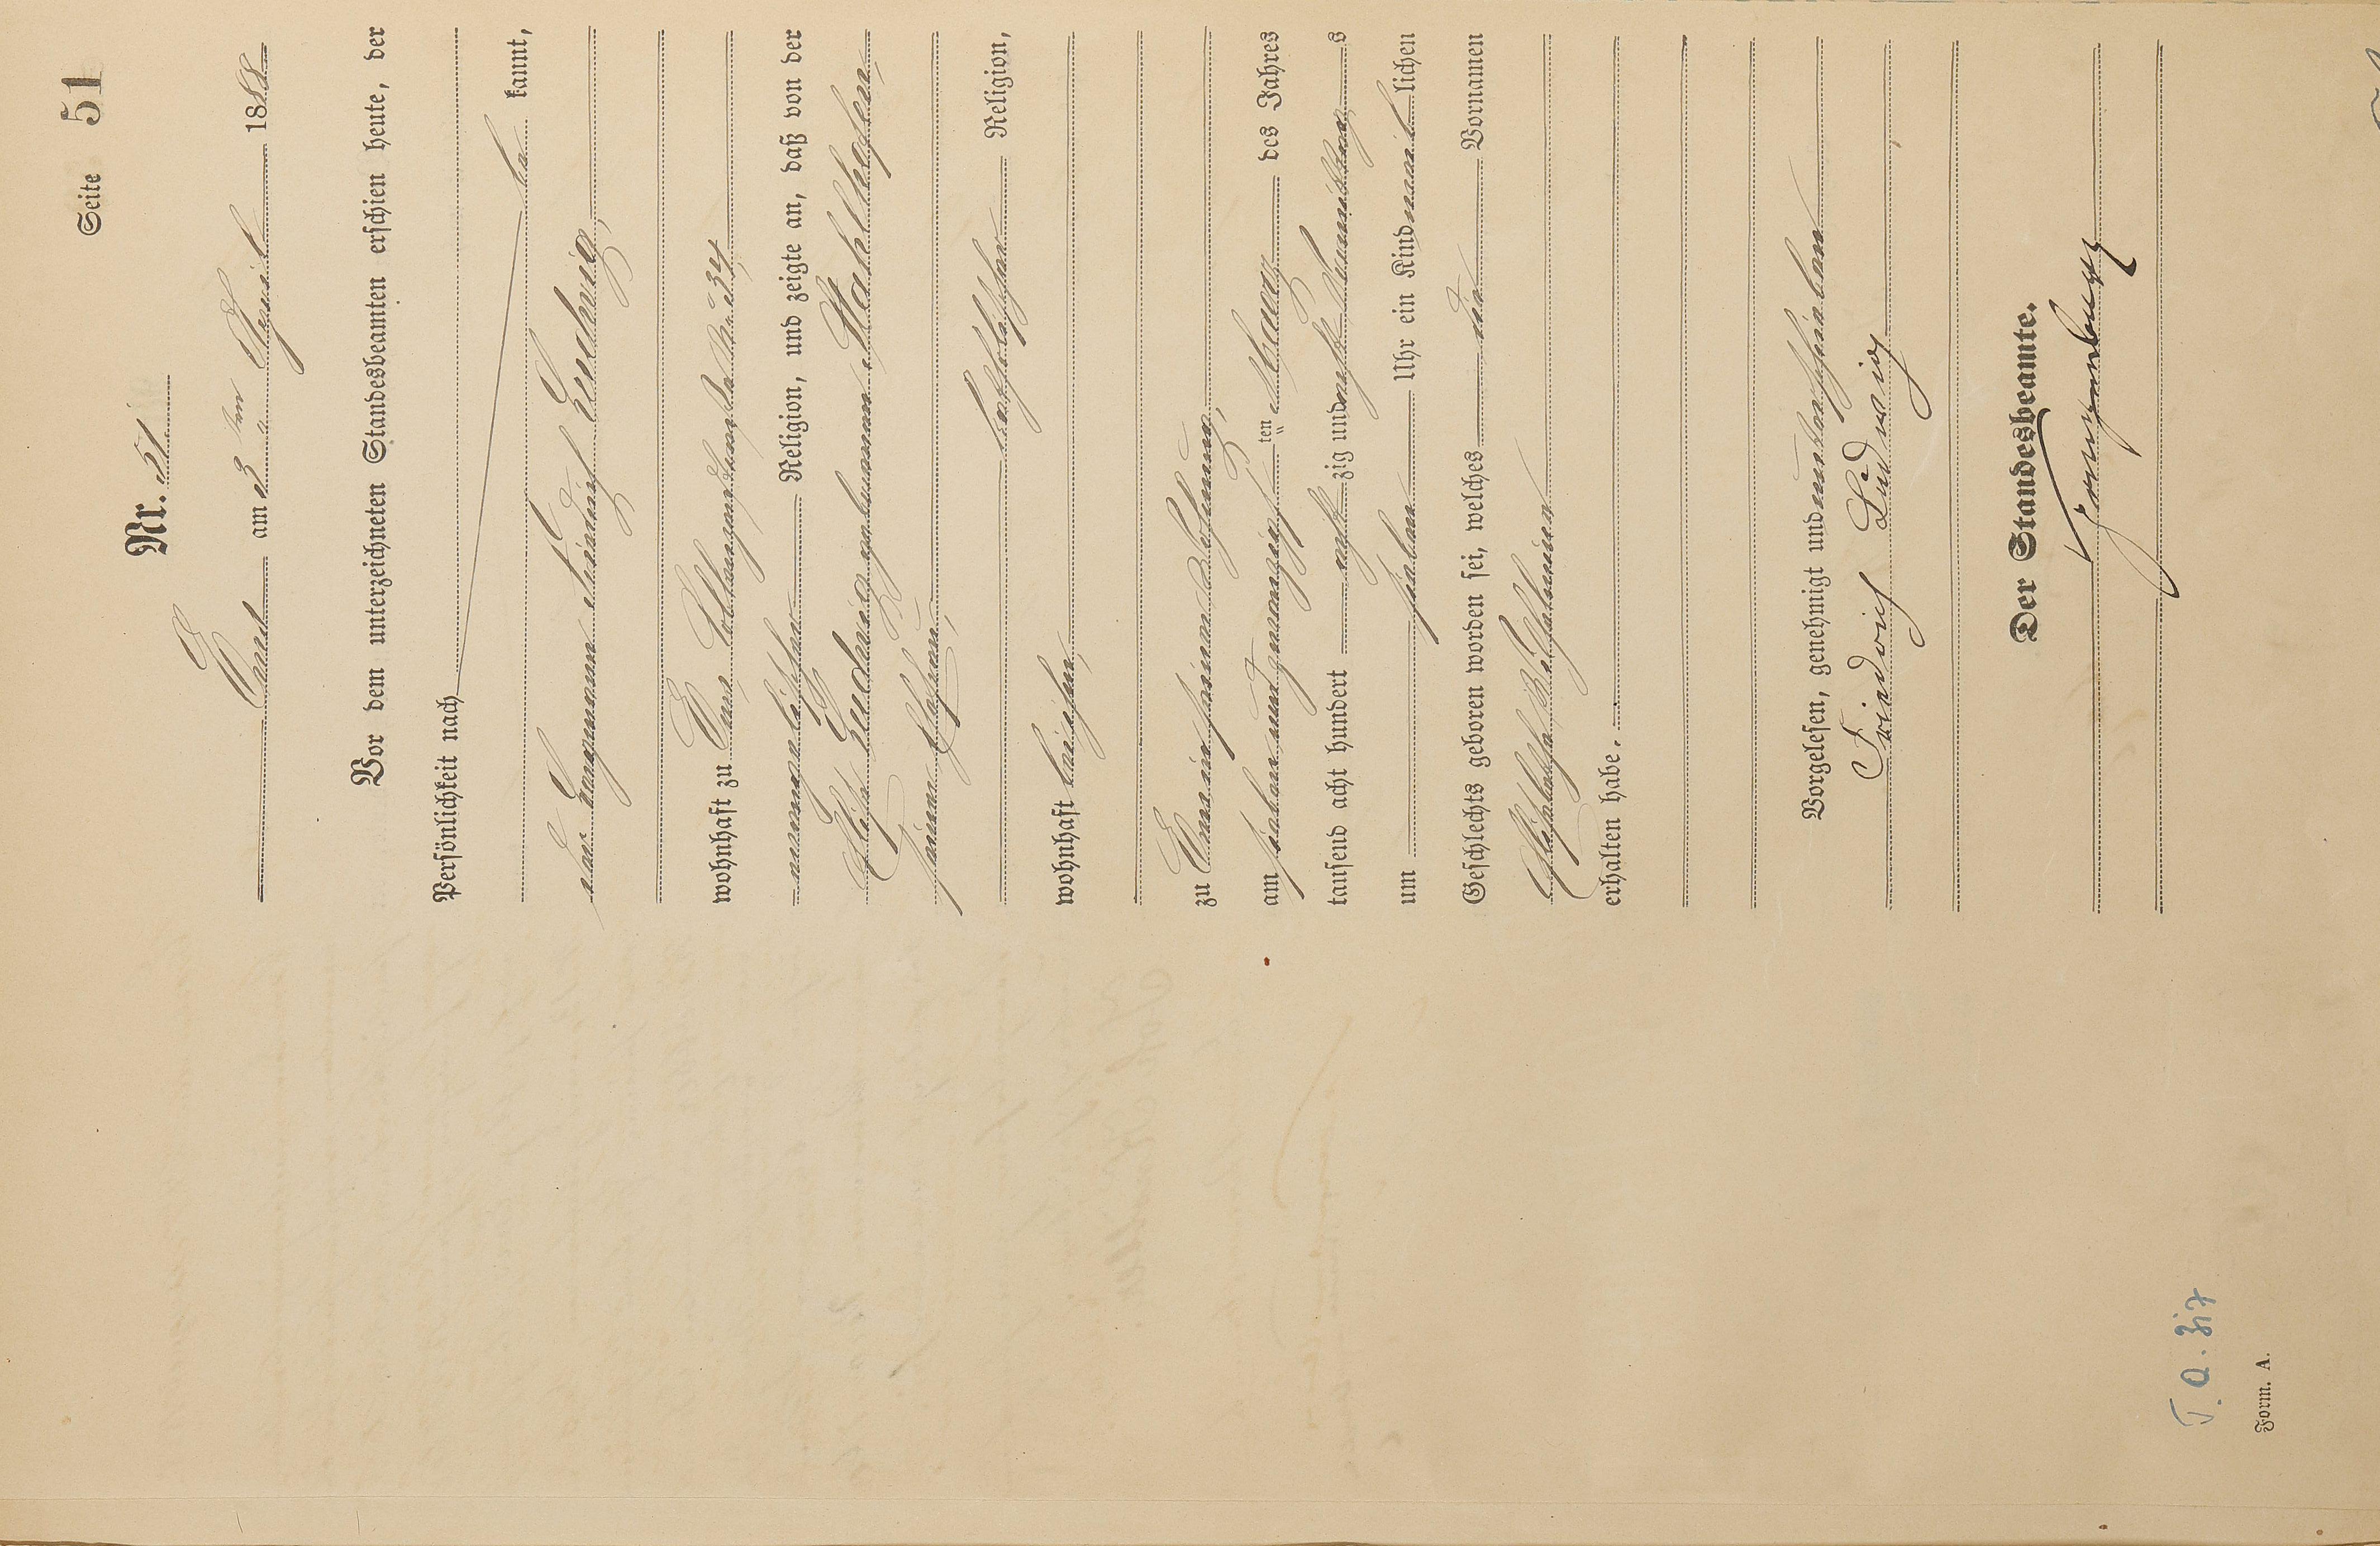 Seite 51
Nr. 51.
Ems am 3 ten April 1888
Vor dem unterzeichneten Standesbeamten erschien heute, der
Persönlichkeit nach
be kannt,
der Bergmann Friedrich Ludwig,
wohnhaft zu Ems, No 34,
evangelischer Religion, und zeigte an, daß von der
Ludwig geborenen Stahlhofen,
seiner Ehefrau,
katholischer Religion,
wohnhaft bei ihm,
zu Ems in seiner Wohnung,
am sieben und zwanzigsten März des Jahres
tausend acht hundert achtzig und acht Vormittags
um sieben Uhr ein Kind männlichen
Geschlechts geboren worden sei, welches die Vornamen
Wilhelm
erhalten habe.
Vorgelesen, genehmigt und unterschrieben
Friedrich Ludwig
Der Standesbeamte.
T. a. Zi7
Form. A.